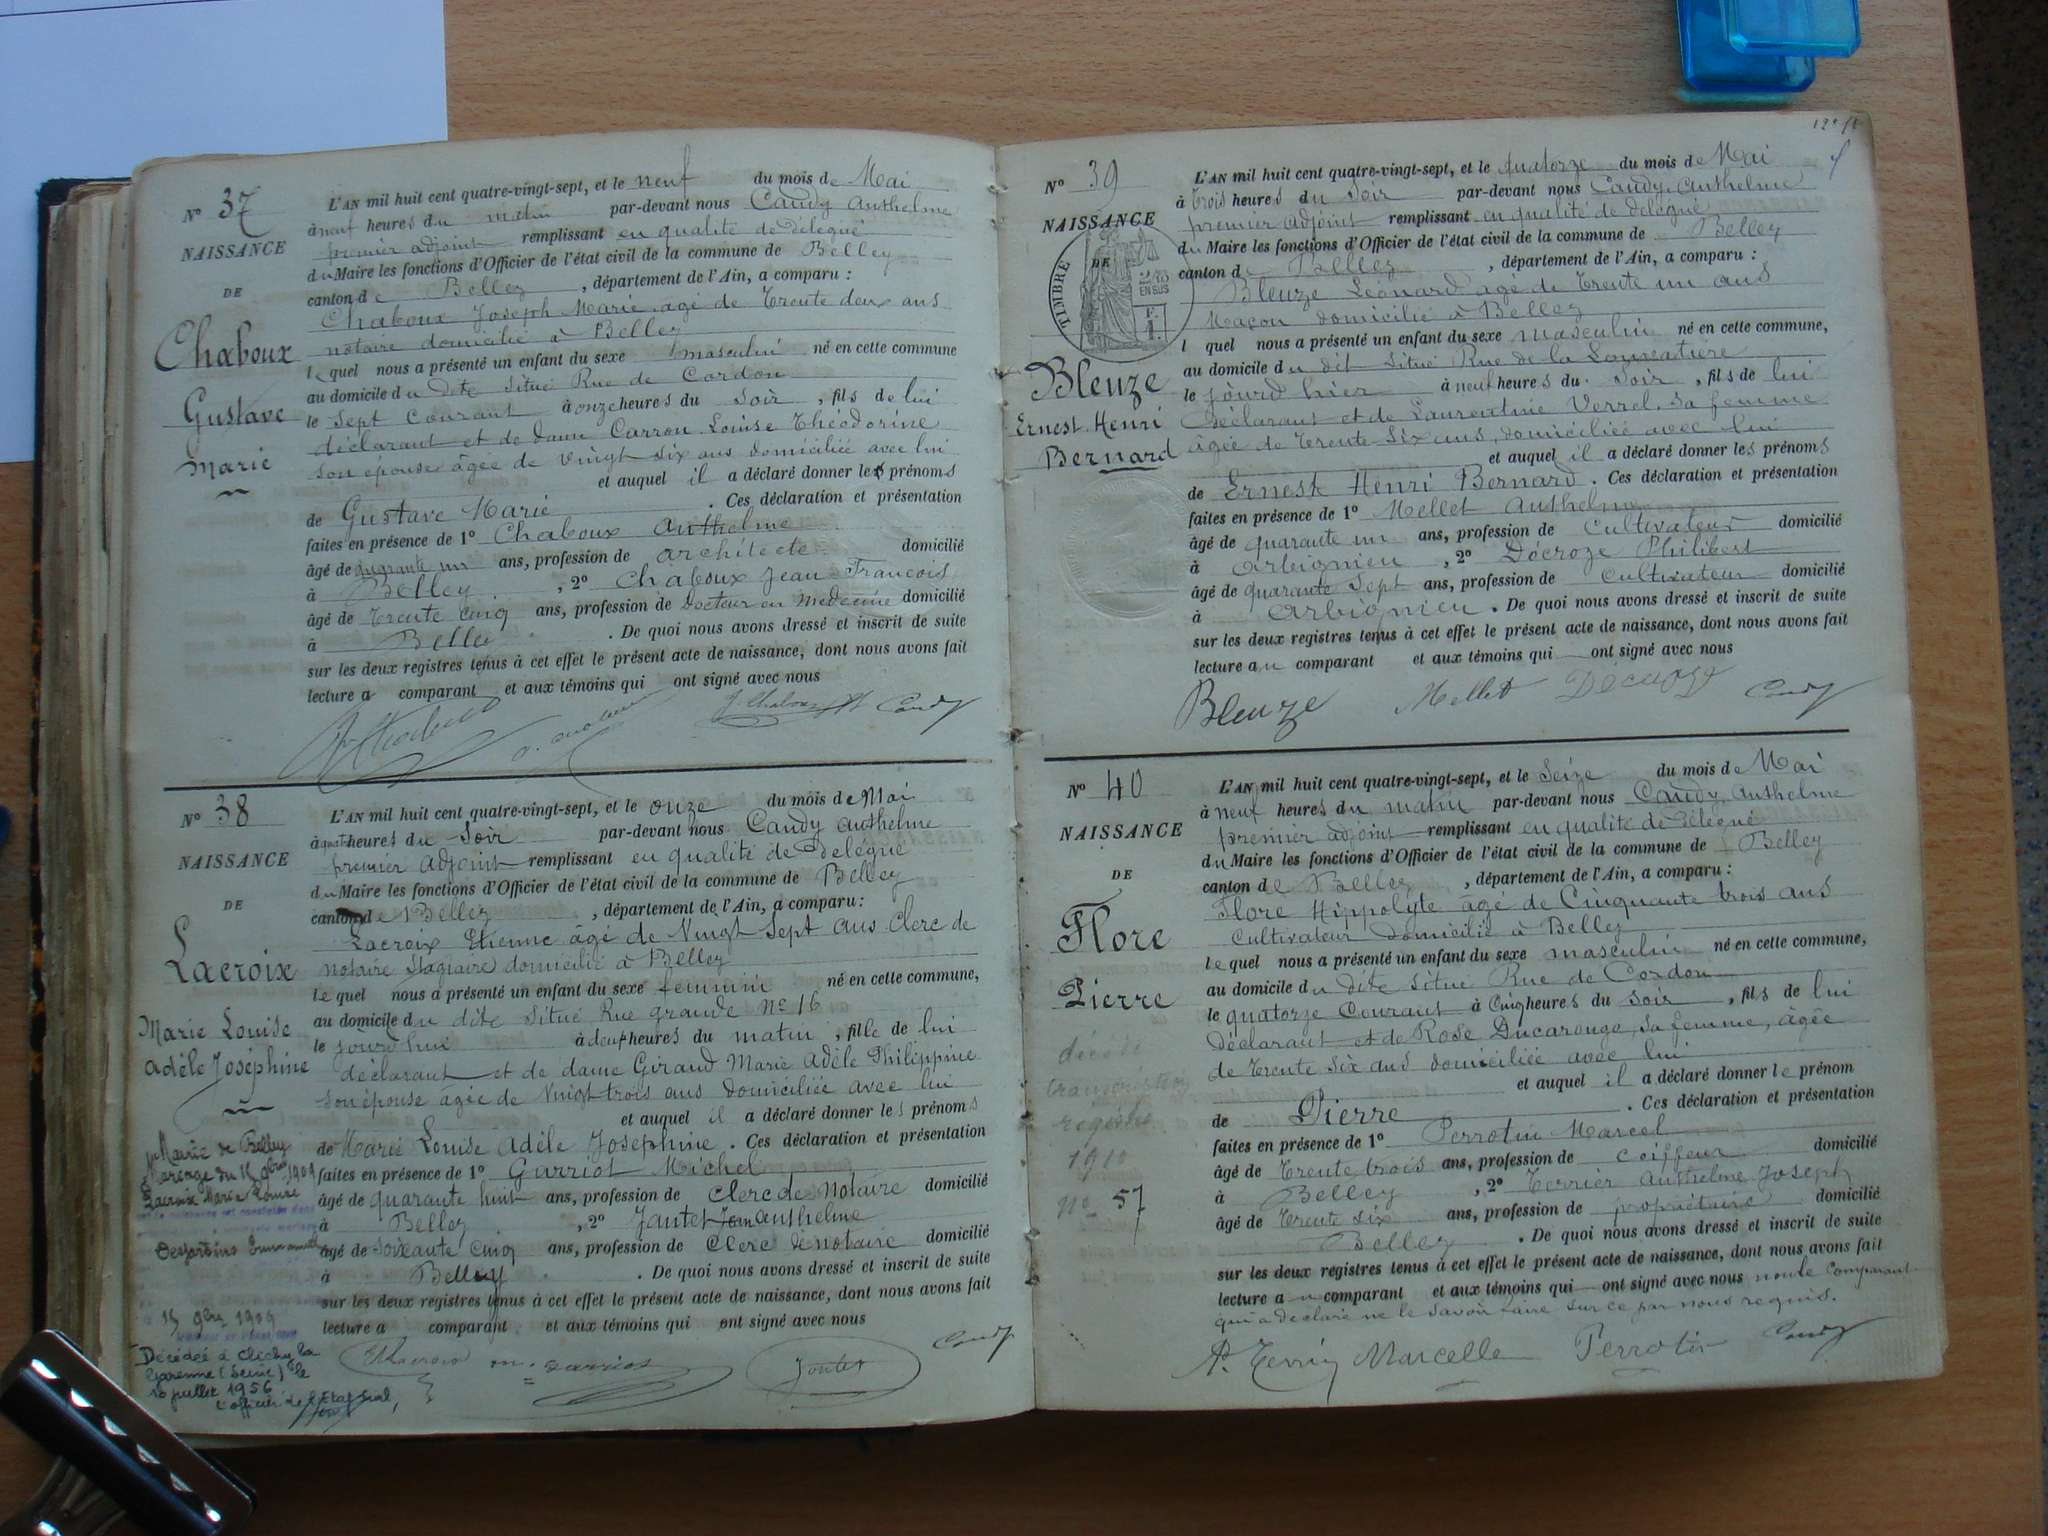 Nº 37
NAISSANCE
DE
Chaboux
Gustave
Marie
L'AN mil huit cent quatre-vingt-sept, et le neuf du mois de Mai
à neuf heures du matin par-devant nous Candy Anthelme
premier adjoint remplissant en qualité de délégué
du Maire les fonctions d'Officier de l'état civil de la commune de Belley
canton de Belley, département de l'Ain, a comparu :
Chaboux Joseph Marie agé de Trente deux ans
notaire domicilié à Belley
lequel nous a présenté un enfant du sexe masculin né en cette commune
au domicile du dite situé Rue de Cordon
le Sept Courant à onze heures du Soir, fils de lui
déclarant et de dame Carron Louise Théodorine
son épouse âgée de Vingt six ans domiciliée avec lui
et auquel il a déclaré donner les prénoms
de Gustave Marie. Ces déclaration et présentation
faites en présence de 1º Chaboux Anthelme
âgé de quarante un ans, profession de architecte domicilié
à Belley, 2º Chaboux Jean François
âgé de Trente Cinq ans, profession de Docteur en Medecine domicilié
à Belley. De quoi nous avons dressé et inscrit de suite
sur les deux registres tenus à cet effet le présent acte de naissance, dont nous avons fait
lecture a comparant et aux témoins qui ont signé avec nous
J. Chaboux Candy
Nº 38
NAISSANCE
DE
Lacroix
Marie Louise
Adèle Joséphine
L'AN mil huit cent quatre-vingt-sept, et le onze du mois de Mai
à quatre heures du Soir par-devant nous Candy Anthelme
premier Adjoint remplissant en qualité de Délégué
du Maire les fonctions d'Officier de l'état civil de la commune de Belley
canton de Belley, département de l'Ain, a comparu :
Lacroix Etienne âgé de Vingt Sept ans Clerc de
notaire Stagiaire domicilié à Belley
lequel nous a présenté un enfant du sexe feminin né en cette commune,
au domicile du dite situé Rue grande Nº 16
le jourd'hui à deux heures du matin, fille de lui
déclarant et de dame Giraud Marie Adèle Philippine
son épouse âgée de Vingt trois ans domiciliée avec lui
et auquel il a déclaré donner les prénoms
de Marie Louise Adèle Josephine. Ces déclaration et présentation
faites en présence de 1º Garriot Michel
âgé de quarante huit ans, profession de Clerc de Notaire domicilié
à Belley, 2º Jantet Jean Anthelme
âgé de soixante Cinq ans, profession de Clerc de notaire domicilié
à Belley. De quoi nous avons dressé et inscrit de suite
sur les deux registres tenus à cet effet le présent acte de naissance, dont nous avons fait
lecture a comparant et aux témoins qui ont signé avec nous
Mairie de Belley
Mariage du 15 9bre 1909
Lacroix Marie Louise
Desjardins Emmanuel
15 9bre 1909
Décédée à Clichy la
Garenne (Seine) le
10 juillet 1956
L'officier de l'Etat Civil,
Elacroix m. garriot Jantet Candy
Nº 39
NAISSANCE
DE
TIMBRE
EN SUS
Bleuze
Ernest Henri
Bernard
L'AN mil huit cent quatre-vingt-sept, et le quatorze du mois de Mai
à trois heures du Soir par-devant nous Candy Anthelme
premier adjoint remplissant en qualité de délégué
du Maire les fonctions d'Officier de l'état civil de la commune de Belley
canton de Belley, département de l'Ain, a comparu :
Bleuze Léonard agé de Trente un ans
Maçon domicilié à Belley
lequel nous a présenté un enfant du sexe masculin né en cette commune,
au domicile du dit situé Rue de la
le jourd hier à neuf heures du Soir, fils de lui
Déclarant et de Laurentine Verrel sa femme
âgée de Trente Six ans, domiciliée avec lui
et auquel il a déclaré donner les prénoms
de Ernest Henri Bernard. Ces déclaration et présentation
faites en présence de 1º Mellet Anthelme
âgé de quarante un ans, profession de Cultivateur domicilié
à Arbignieu, 2º Décroze Philibert
âgé de quarante Sept ans, profession de Cultivateur domicilié
à Arbignieu. De quoi nous avons dressé et inscrit de suite
sur les deux registres tenus à cet effet le présent acte de naissance, dont nous avons fait
lecture au comparant et aux témoins qui ont signé avec nous
Bleuze Mellet Décroze Candy
Nº 40
NAISSANCE
DE
Flore
Pierre
décédé
transcription
registre
1910
Nº 57
L'AN mil huit cent quatre-vingt-sept, et le Seize du mois de Mai
à neuf heures du matin par-devant nous Candy Anthelme
premier adjoint remplissant en qualité de Délégué
du Maire les fonctions d'Officier de l'état civil de la commune de Belley
canton de Belley, département de l'Ain, a comparu :
Flore Hippolyte âgé de Cinquante trois ans
Cultivateur domicilié à Belley
lequel nous a présenté un enfant du sexe masculin né en cette commune,
au domicile du dite situé Rue de Cordon
le quatorze Courant à Cinq heures du Soir, fils de lui
Déclarant et de Rose Ducarouge, sa femme, âgée
de Trente Six ans domiciliée avec lui
et auquel il a déclaré donner le prénom
de Pierre. Ces déclaration et présentation
faites en présence de 1º Perrotin Marcel
âgé de Trente trois ans, profession de Coiffeur domicilié
à Belley, 2º Terrier Anthelme Joseph
âgé de Trente Six ans, profession de propriétaire domicilié
Belley. De quoi nous avons dressé et inscrit de suite
sur les deux registres tenus à cet effet le présent acte de naissance, dont nous avons fait
lecture au comparant et aux témoins qui ont signé avec nous non le Comparant
qui a déclaré ne le savoir faire sur ce par nous requis.
A. Terrier Marcelle Perrotin Candy